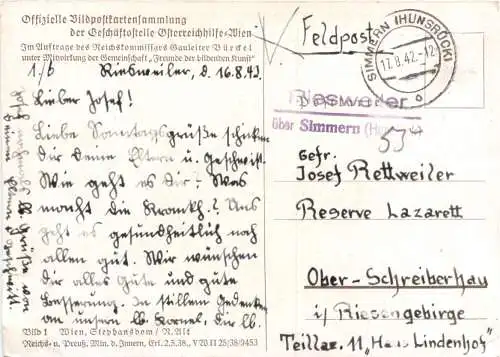 Offizielle Bildpostkartensammlung
der Geschäftsstelle Österreichhilfe=Wien
Im Auftrage des Reichskommissars Gauleiter Bürckel
unter Mitwirkung der Gemeinschaft „Freunde der bildenden Kunst"
Riesweiler, d. 16.8.42.
Lieber Josef!
Liebe Sonntagsgrüße schicken
dir deine Eltern u. Geschwist.
Wie geht es dir? Was
macht die Krankh.? Uns
geht es gesundheitlich noch
allen gut. Wir wünschen
dir alles Gute und gute
Besserung. In stillem Gedenken
an unsern lb. Kornel, dir lb.
Josef nochmals lb. Grüße von
deinen Eltern u. Geschwist.
Bild 1 Wien, Stephansdom / N. Alt
Reichs- u. Preuß. Min. d. Innern, Erl. 2.5.38., V W II 25/38/9453
Feldpost
SIMMERN (HUNSRÜCK)
17.8.42.-12
Riesweiler
über Simmern
Gefr.
Josef Rettweiler
Reserve Lazarett
Ober-Schreiberhau
i/ Riesengebirge
Teillaz. 11, Haus Lindenhof"